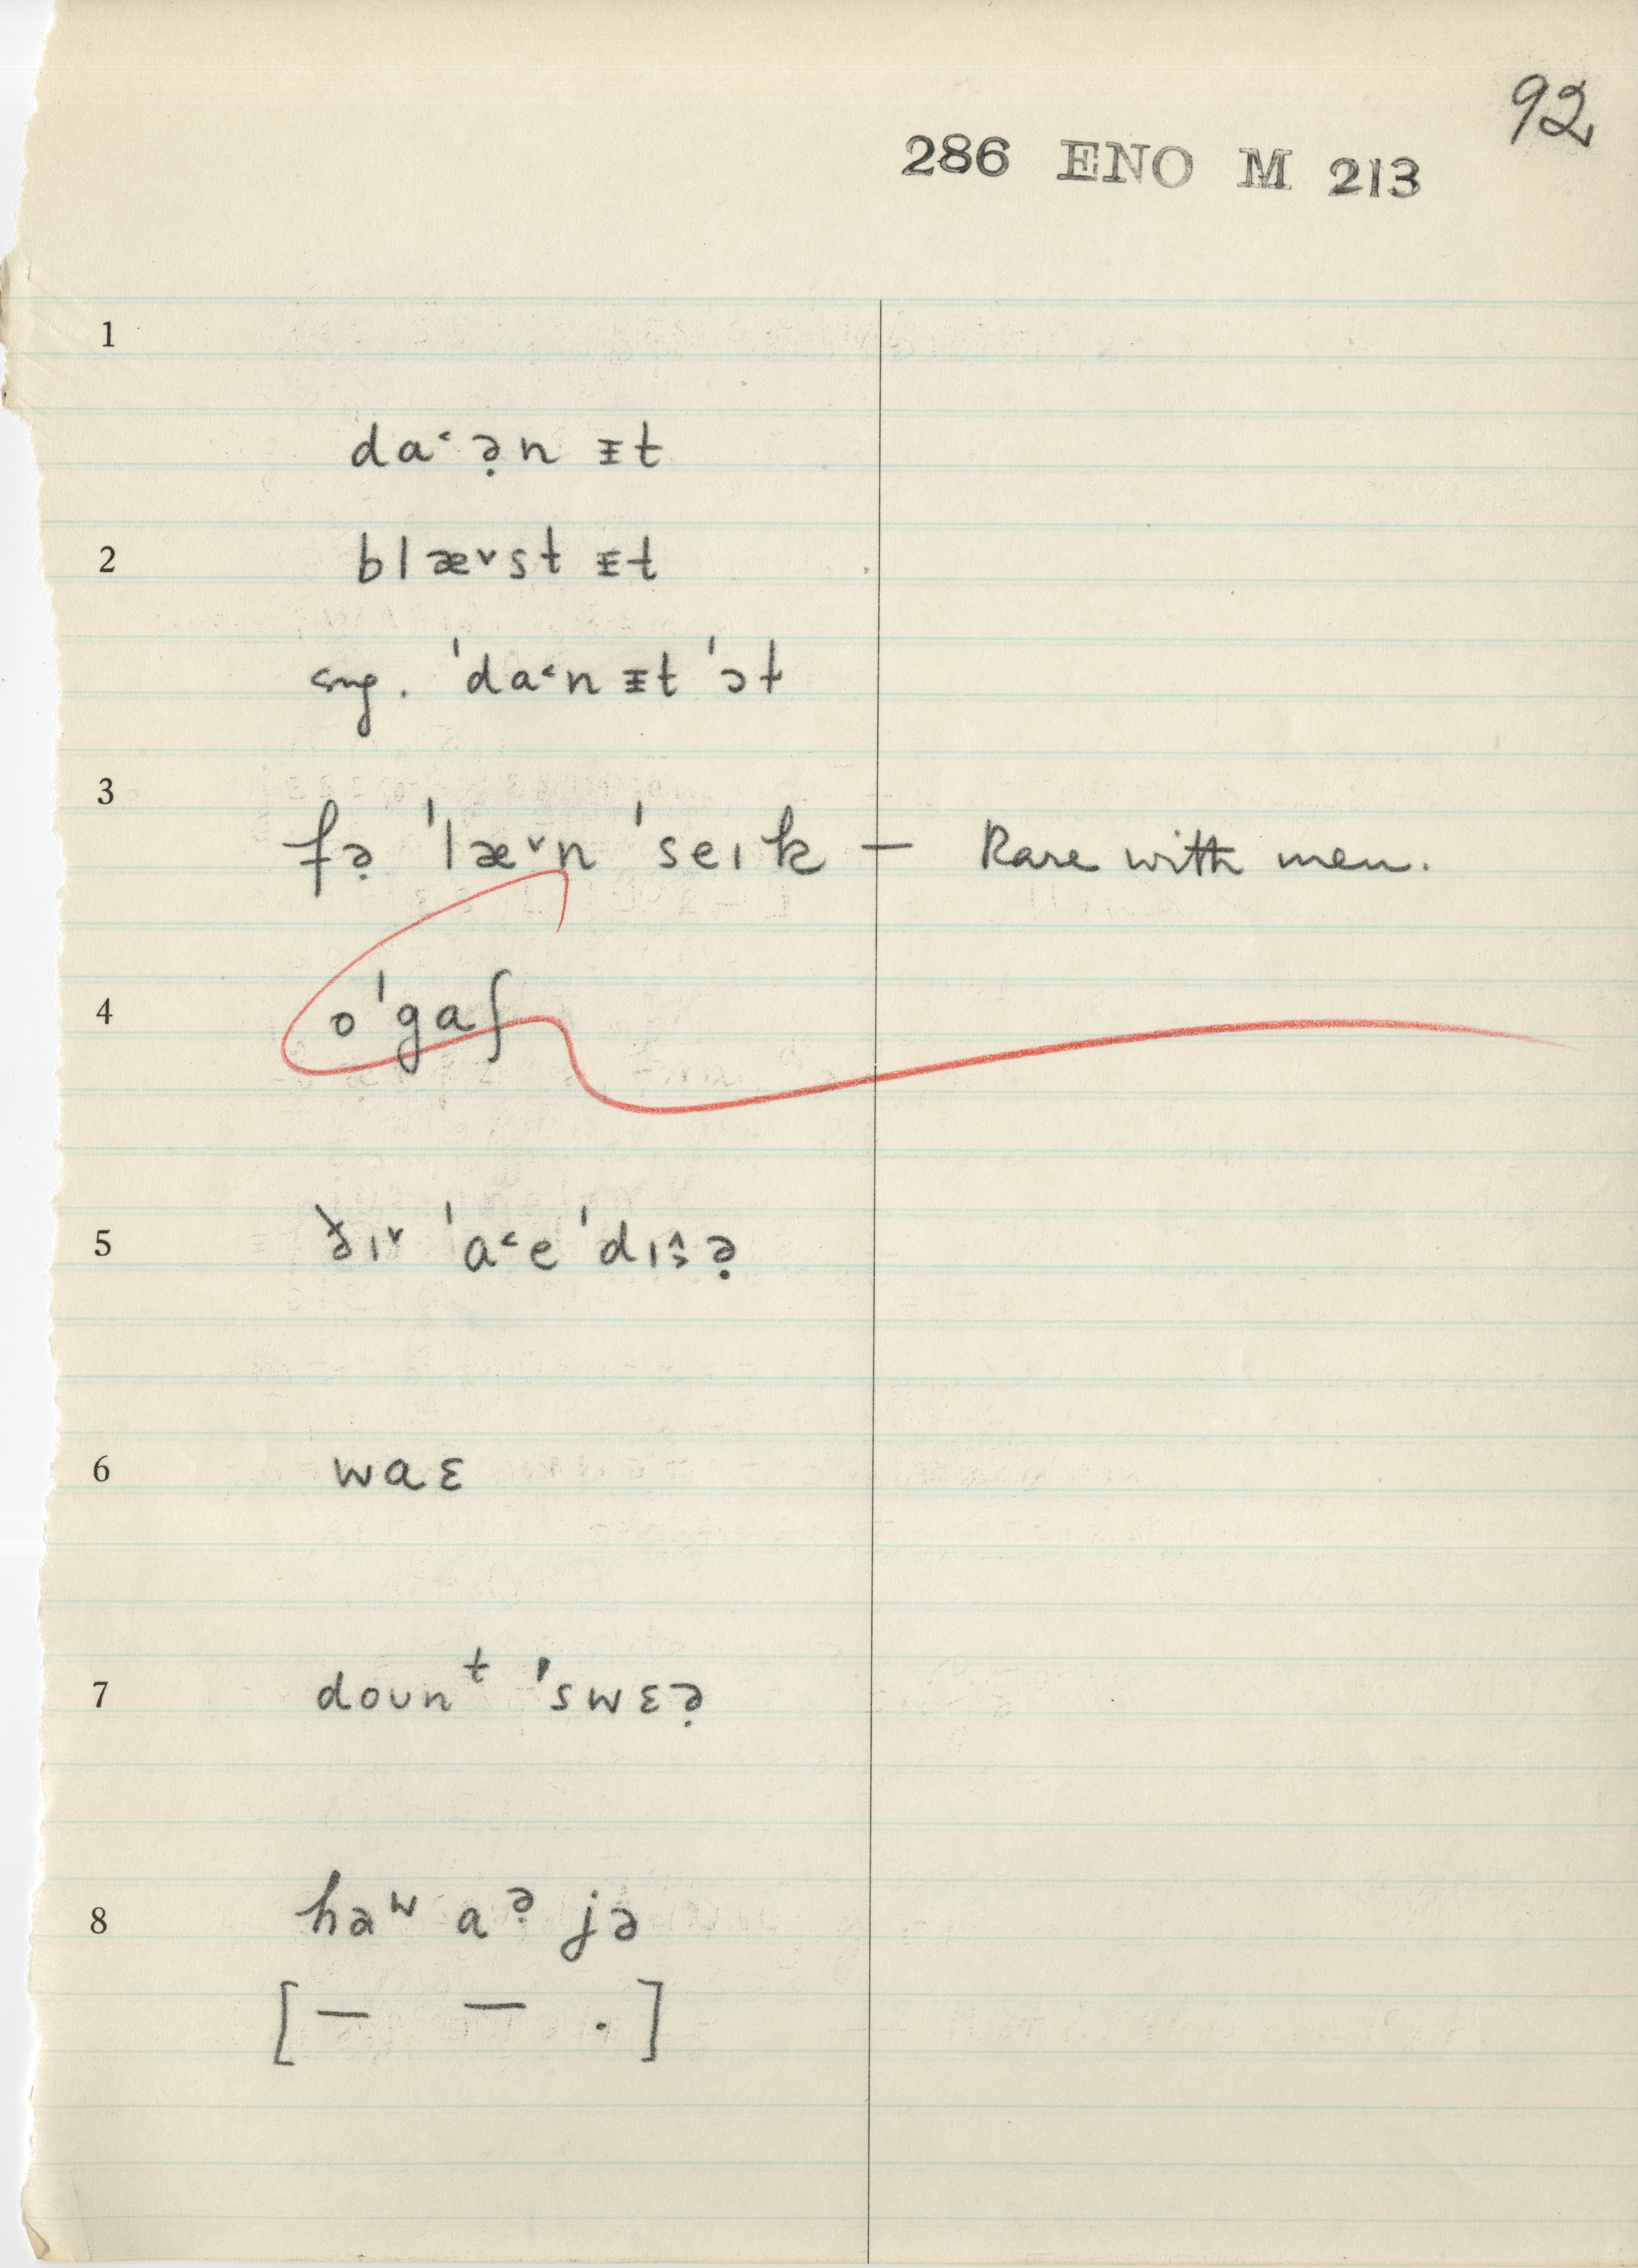 92
286 ENO M 213
1
da˂ ə̣n ᵻt
2 blæ˅st ᵻt
sug. ˈda˂n ᵻt ˈɔt
3
fə̣ ˈlæ˅n ˈseɪk — Rare with men.
4 oˈgaʃ
5 ðɪ˅ ˈa˂e ˈdɪːə̣
6 waɛ
7 doʊnᵗ ˈswɛə̣
8 həʷ aᵊ̣ jə
[ — — . ]